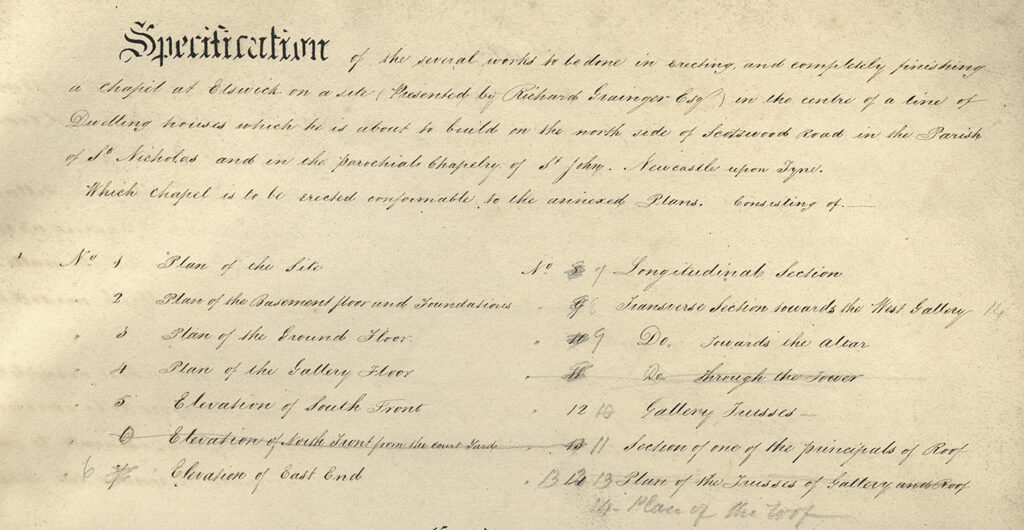 Specification of the several works to be done in erecting and completely finishing
a chapel at Elswick on a site (Presented by Richard Grainger Esqr) in the centre of a line of
Dwelling houses which he is about to build on the north side of Scotswood Road in the Parish
of St Nicholas and in the parochiale Chapelry of St John. Newcastle upon Tyne.
Which chapel is to be erected conformable to the annexed Plans. Consisting of
No 1 Plan of the Site
" 2 Plan of the Basement floor and Foundations
" 3 Plan of the Ground Floor.
" 4 Plan of the Gallery Floor
" 5 Elevation of South Front
" 6 Elevation of North Front from the court Yard
" 6 7 Elevation of East End
No 8 7 Longitudinal Section
" 9 8 Transverse Section towards the West Gallery 14
" 10 9 Do. towards the altar
" 11 Do through the Tower
" 12 10 Gallery Trusses
" 13 11 Section of one of the principals of Roof
" 13 14 13 Plan of the Trusses of Gallery and Roof
14 Plan of the roof